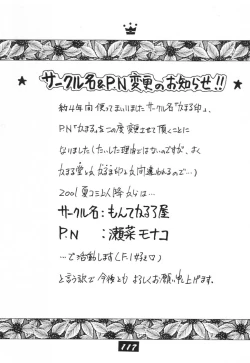 サークル名&P.N変更のお知らせ!!
約4年間使ってまいりましたサークル名「かまる印」、
P.N「かまる」をこの度変更させて頂くことに
なりました(たいした理由ではないのですが、よく
と間違われるので…)
2001夏コミ以降からは…
サークル名:もんてかるろ屋
P.N :瀬菜モナコ
…で活動します
と言う訳で今後ともよろしくお願い申し上げます。
117